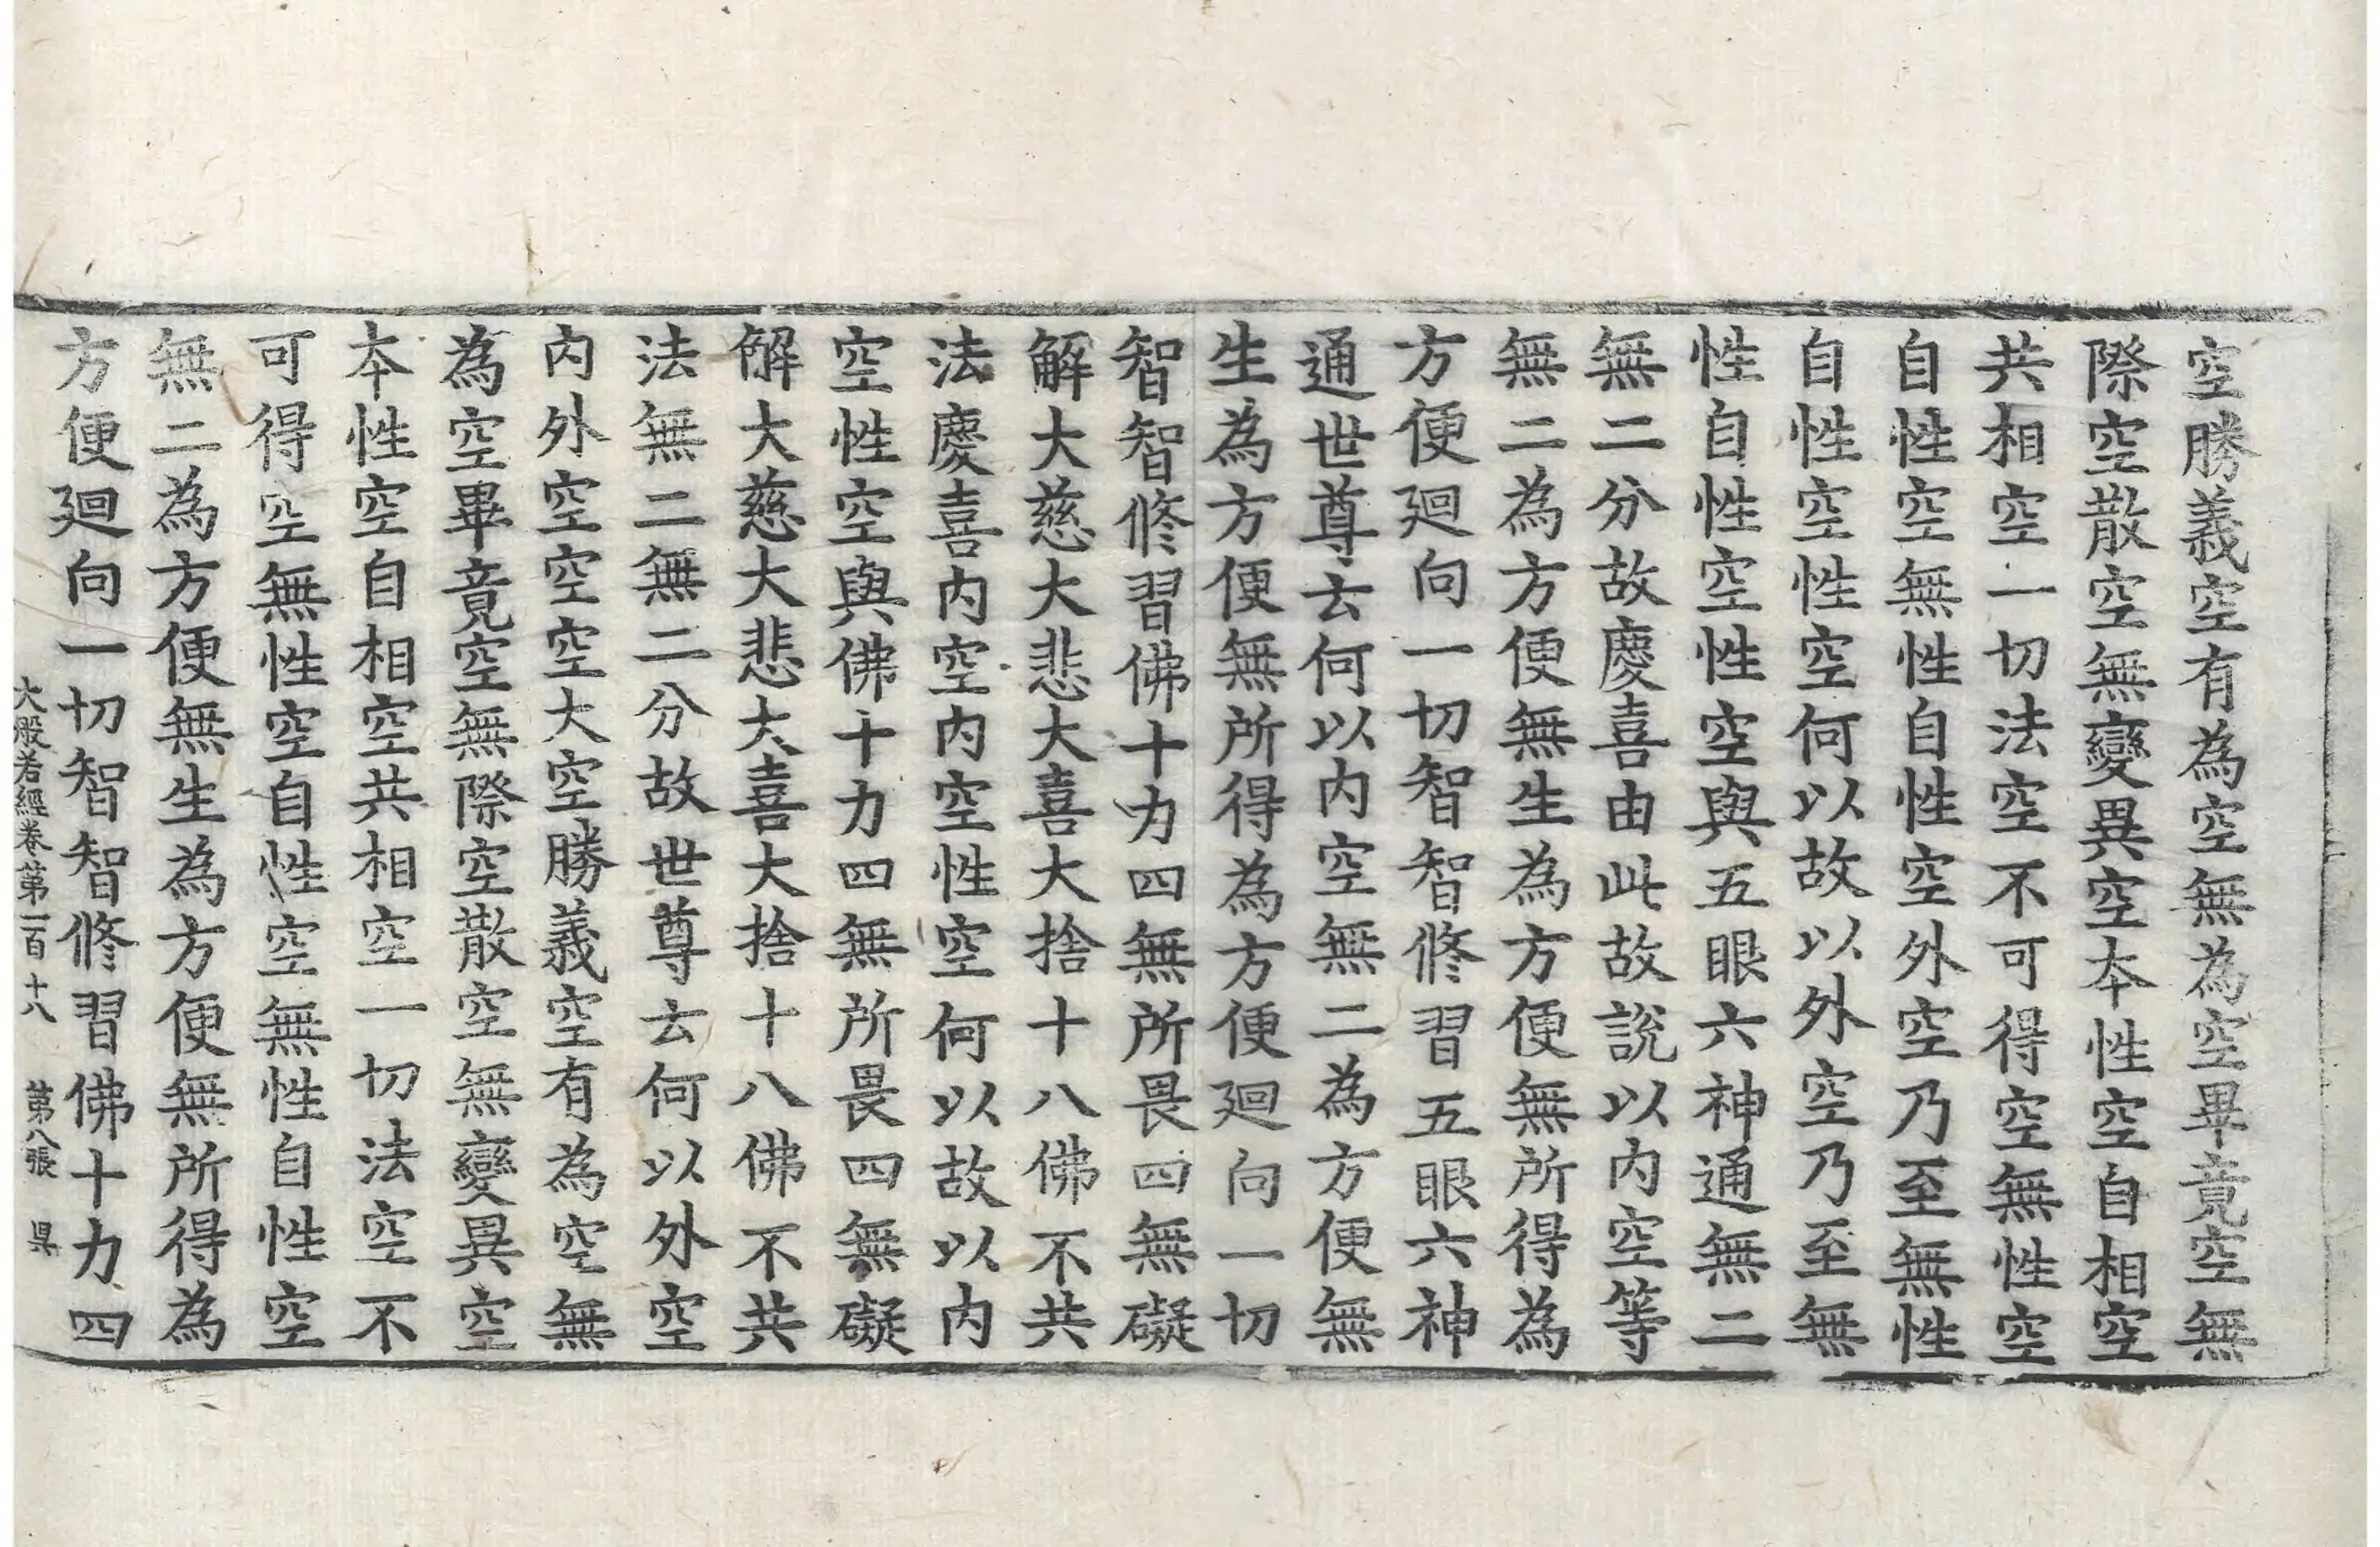 空勝義空有為空無為空畢竟空無
際空散空無變異空本性空自相空
共相空一切法空不可得空無性空
自性空無性自性空外空乃至無性
自性空性空何以故以外空乃至無
性自性空性空與五眼六神通無二
無二分故慶喜由此故說以内空等
無二為方便無生為方便無所得為
方便廻向一切智智修習五眼六神
通世尊云何以内空無二為方便無
生為方便無所得為方便廻向一切
智智修習佛十力四無所畏四無礙
解大慈大悲大喜大捨十八佛不共
法慶喜内空内空性空何以故以内
空性空與佛十力四無所畏四無礙
解大慈大悲大喜大捨十八佛不共
法無二無二分故世尊云何以外空
内外空空空大空勝義空有為空無
為空畢竟空無際空散空無變異空
本性空自相空共相空一切法空不
可得空無性空自性空無性自性空
無二為方便無生為方便無所得為
方便廻向一切智智修習佛十力四
大般若經卷第一百十八 第八張 昃